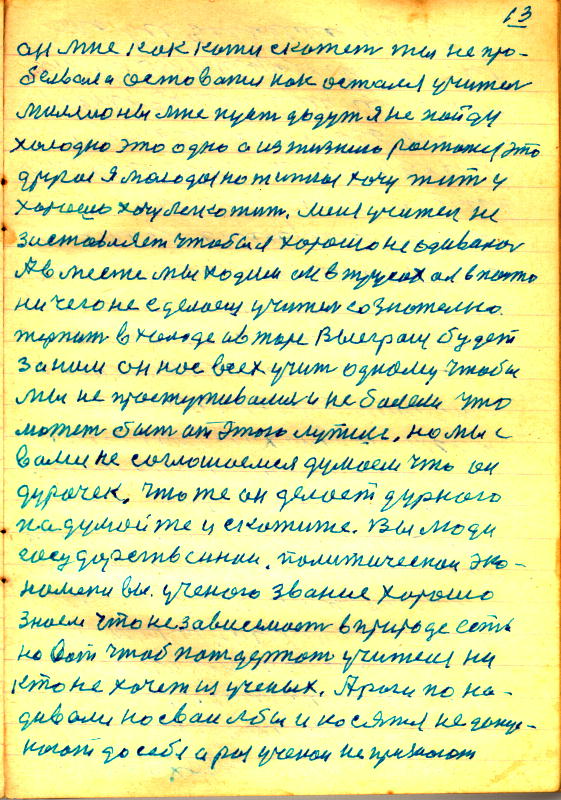 13
он мне как коти скотет ты не про-
бывала оставати как остался учител
миллионы мне пуст дадут я не пойду
холодно это одно а из жизнию растанся это
другое я молодая но типпая хочу тит и
хорошо хочу лекотит. Меня учител не
заставляет чтобы я хорошо не одивалас
А вместе мы ходим он в трусах а я в полто
ни чего не сделаеш учител сознотелно
терпит в холоде и втаре Выеграш будет
за ним он нос всех учит одному чтобы
мы не простуживалис и не болели что
может быт от этого лутше, но мы с
вами не соглошаемся думаем что он
дурочек. Что же он делоет дурного
падумойте и скотите. Вы люди
государствении, политическои эко-
номеки вы. ученого звание хорошо
знаем что независемост в природе есть
но вот чтоб патдертот учителя ни
кто не хочет из ученых. А роги по на-
дивали но сваи лбы и носятся не дапус-
кают до себя а роз ученои не признают